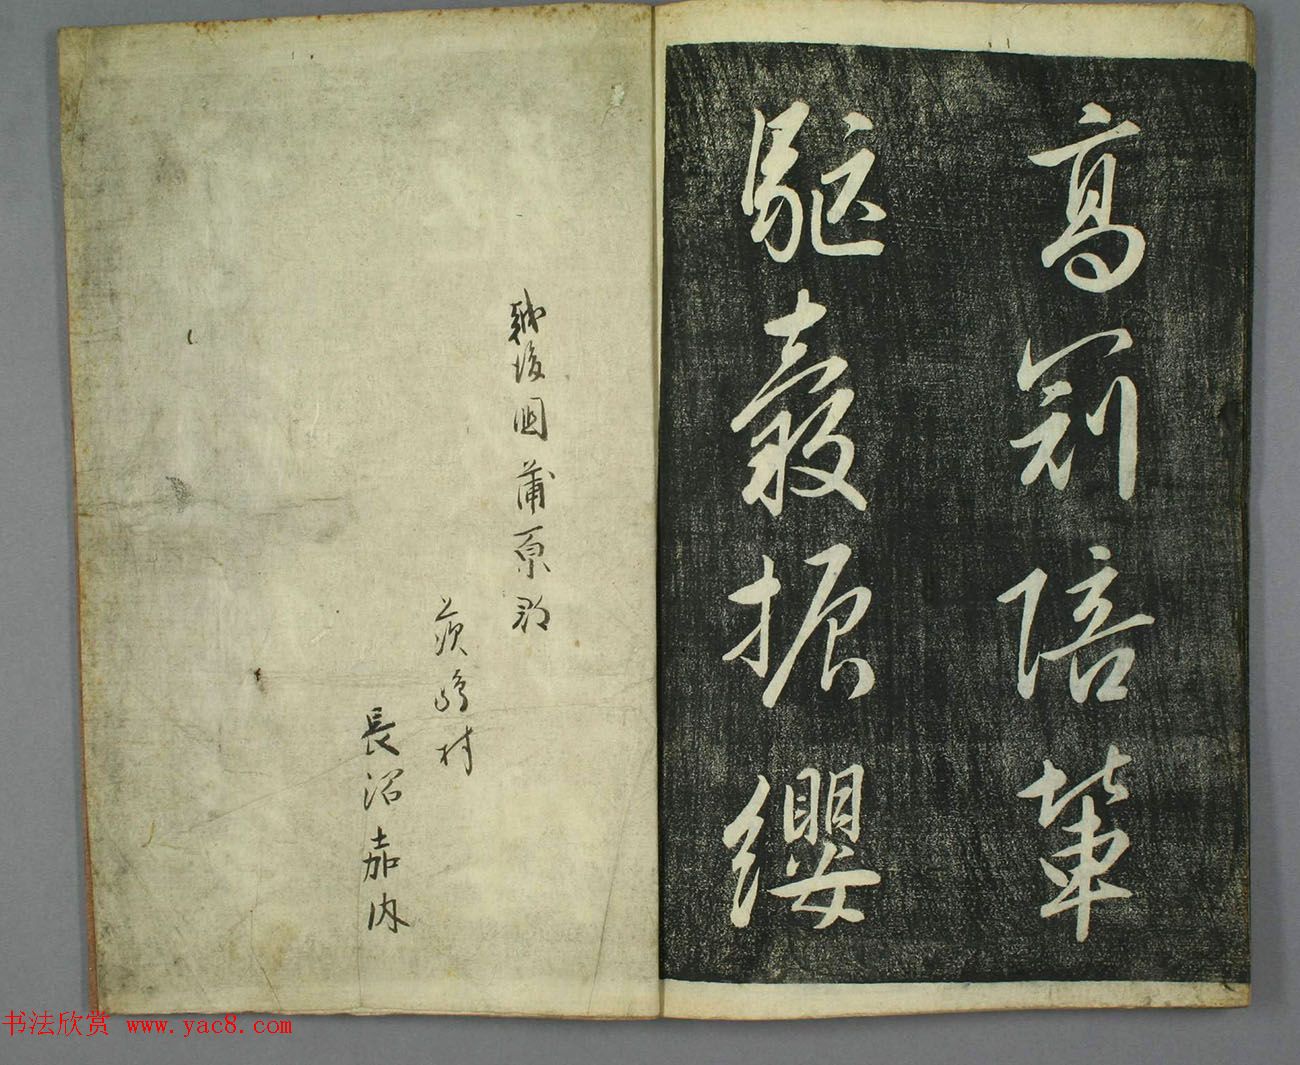 高冠陪輦
驅轂振纓
越後国蒲原郡
嶋村
長沼嘉内
书法欣赏 www.yac8.com